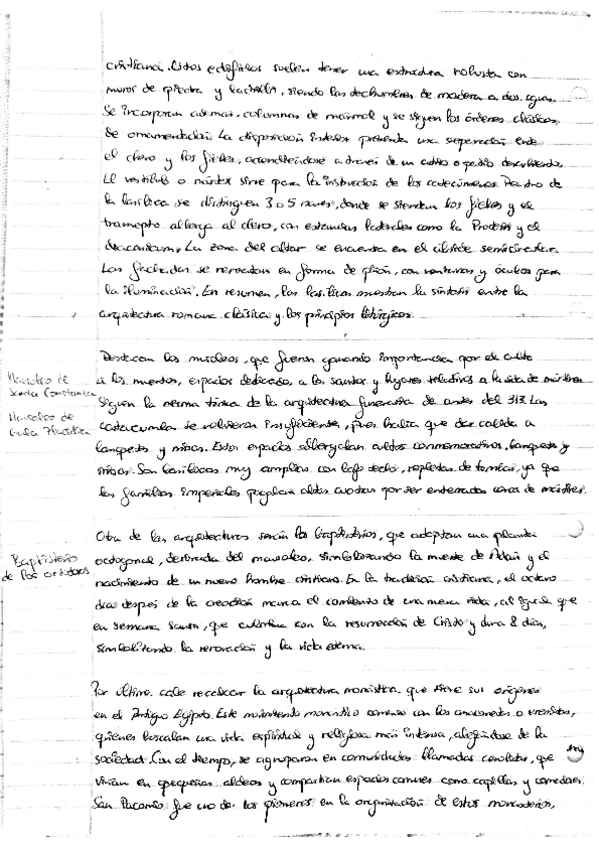 cristiana. Estos edificios suelen tener una estructura robusta con
muros de piedra y ladrillo, siendo las techumbres de madera a dos aguas.
Se incorporan además, columnas de mármol y se siguen los órdenes clásicos
de ornamentación. La disposición interior presenta una separación entre
el clero y los fieles, accediéndose a través de un atrio o patio descubierto.
El vestíbulo o nártex sirve para la instrucción de los catecúmenos. Dentro de
la basílica se distinguen 3 o 5 naves, donde se sientan los fieles y el
transepto alberga al clero, con estancias laterales como la Protesis y el
diaconicum. La zona del altar se encuentra en el ábside semicircular.
Las fachadas se rematan en forma de piñón, con ventanas y óculos para
la iluminación. En resumen, las basílicas muestran la síntesis entre la
arquitectura romana clásica y los principios litúrgicos.
Destacan los mausoleos, que fueron ganando importancia por el culto
Mausoleo de
Santa Constanza
a los muertos, espacios dedicados a los santos y lugares relativos a la vida de mártires
Mausoleo de
Gala Placidia
Siguen la misma tónica de la arquitectura funeraria de antes del 313. Las
catacumbas se volvieron insuficientes, pues había que dar cabida a
banquetes y misas. Estos espacios albergaban cultos conmemorativos, banquetes y
misas. Son basílicas muy amplias con techo, repletas de tumbas, ya que
las familias imperiales pagaban altas cuotas por ser enterrados cerca de mártires.
Otra de las arquitecturas serían los baptisterios, que adoptan una planta
Baptisterio
de los ortodoxos
octogonal, derivada del mausoleo, simbolizando la muerte de Adán y el
nacimiento de un nuevo hombre cristiano. En la tradición cristiana, el octavo
día después de la creación marca el comienzo de una nueva vida, al igual que
en semana santa, que culmina con la resurrección de Cristo y dura 8 días,
simbolizando la renovación y la vida eterna.
Por último, cabe recalcar la arquitectura monástica que tiene sus orígenes
en el Antiguo Egipto. Este movimiento monástico comenzó con los anacoretas o eremitas,
quienes buscaban una vida espiritual y religiosa más intensa, alejándose de la
sociedad. Con el tiempo, se agruparon en comunidades llamadas cenobitas, que
vivían en pequeñas aldeas y compartían espacios comunes como capillas y comedores.
San Pacomio fue uno de los pioneros en la organización de estos monasterios,